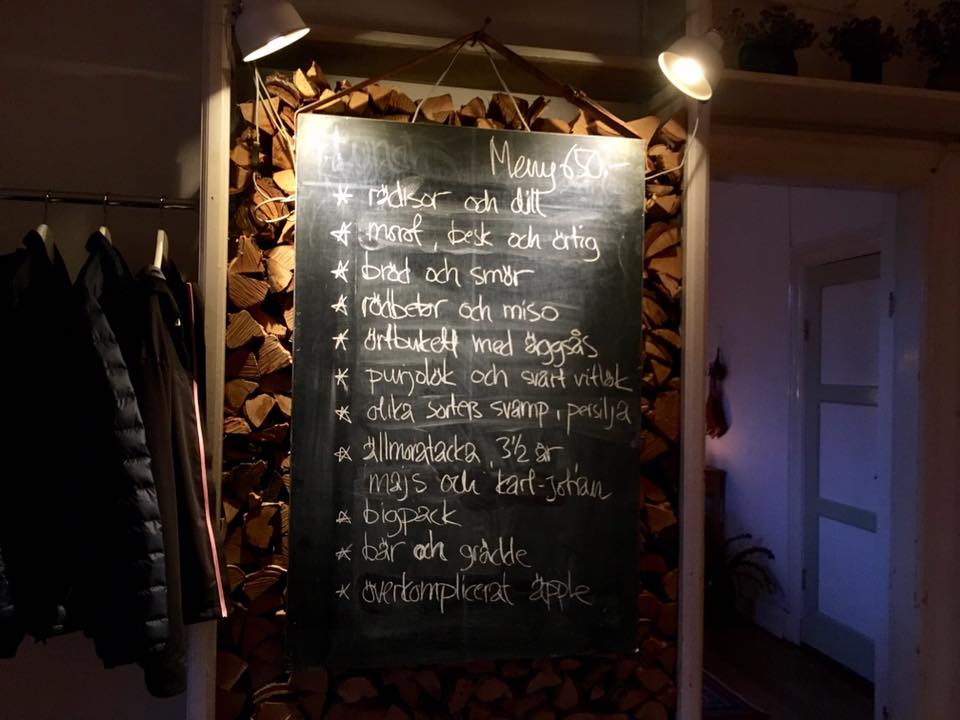 Meny 650,-
* rädisor och dill
* morot, besk och örtig
* bröd och smör
* rödbetor och miso
* örtbukett med äggsås
* purjolök och svart vitlök
* olika sorters svamp, persilja
* ällmoratacka 3½ år
majs och karl-johan
* bigpack
* bär och grädde
* överkomplicerat äpple